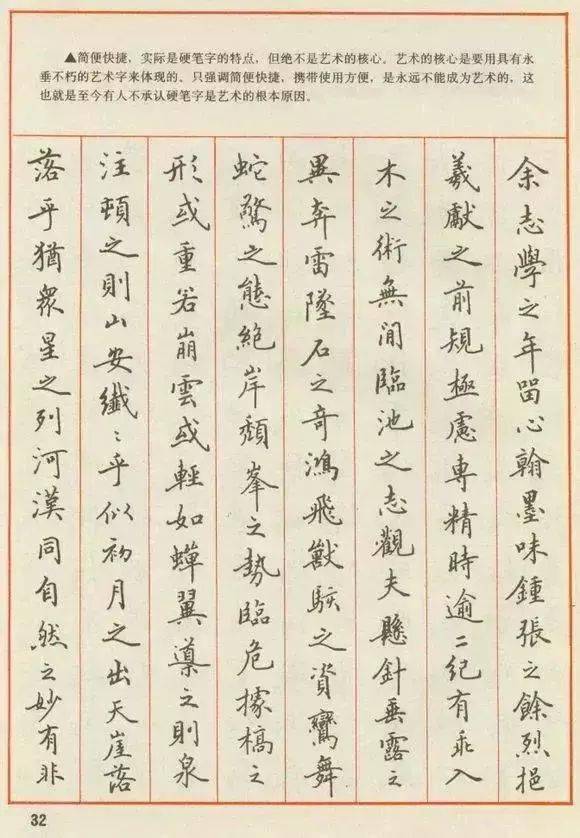 ▲简便快捷,实际是硬笔字的特点,但绝不是艺术的核心。艺术的核心是要用具有永
垂不朽的艺术字来体现的。只强调简便快捷,携带使用方便,是永远不能成为艺术的,这
也就是至今有人不承认硬笔字是艺术的根本原因。
余志學之年留心翰墨味鍾張之餘烈挹
羲獻之前規極慮專精時逾二紀有乖入
木之術無間臨池之志觀夫懸針垂露之
異奔雷墜石之奇鴻飛獸駭之資鸞舞
蛇驚之態絕岸頹峯之勢臨危據槁之
形或重若崩雲或輕如蟬翼導之則泉
注頓之則山安纖〻乎似初月之出天崖落
落乎猶眾星之列河漢同自然之妙有非
32